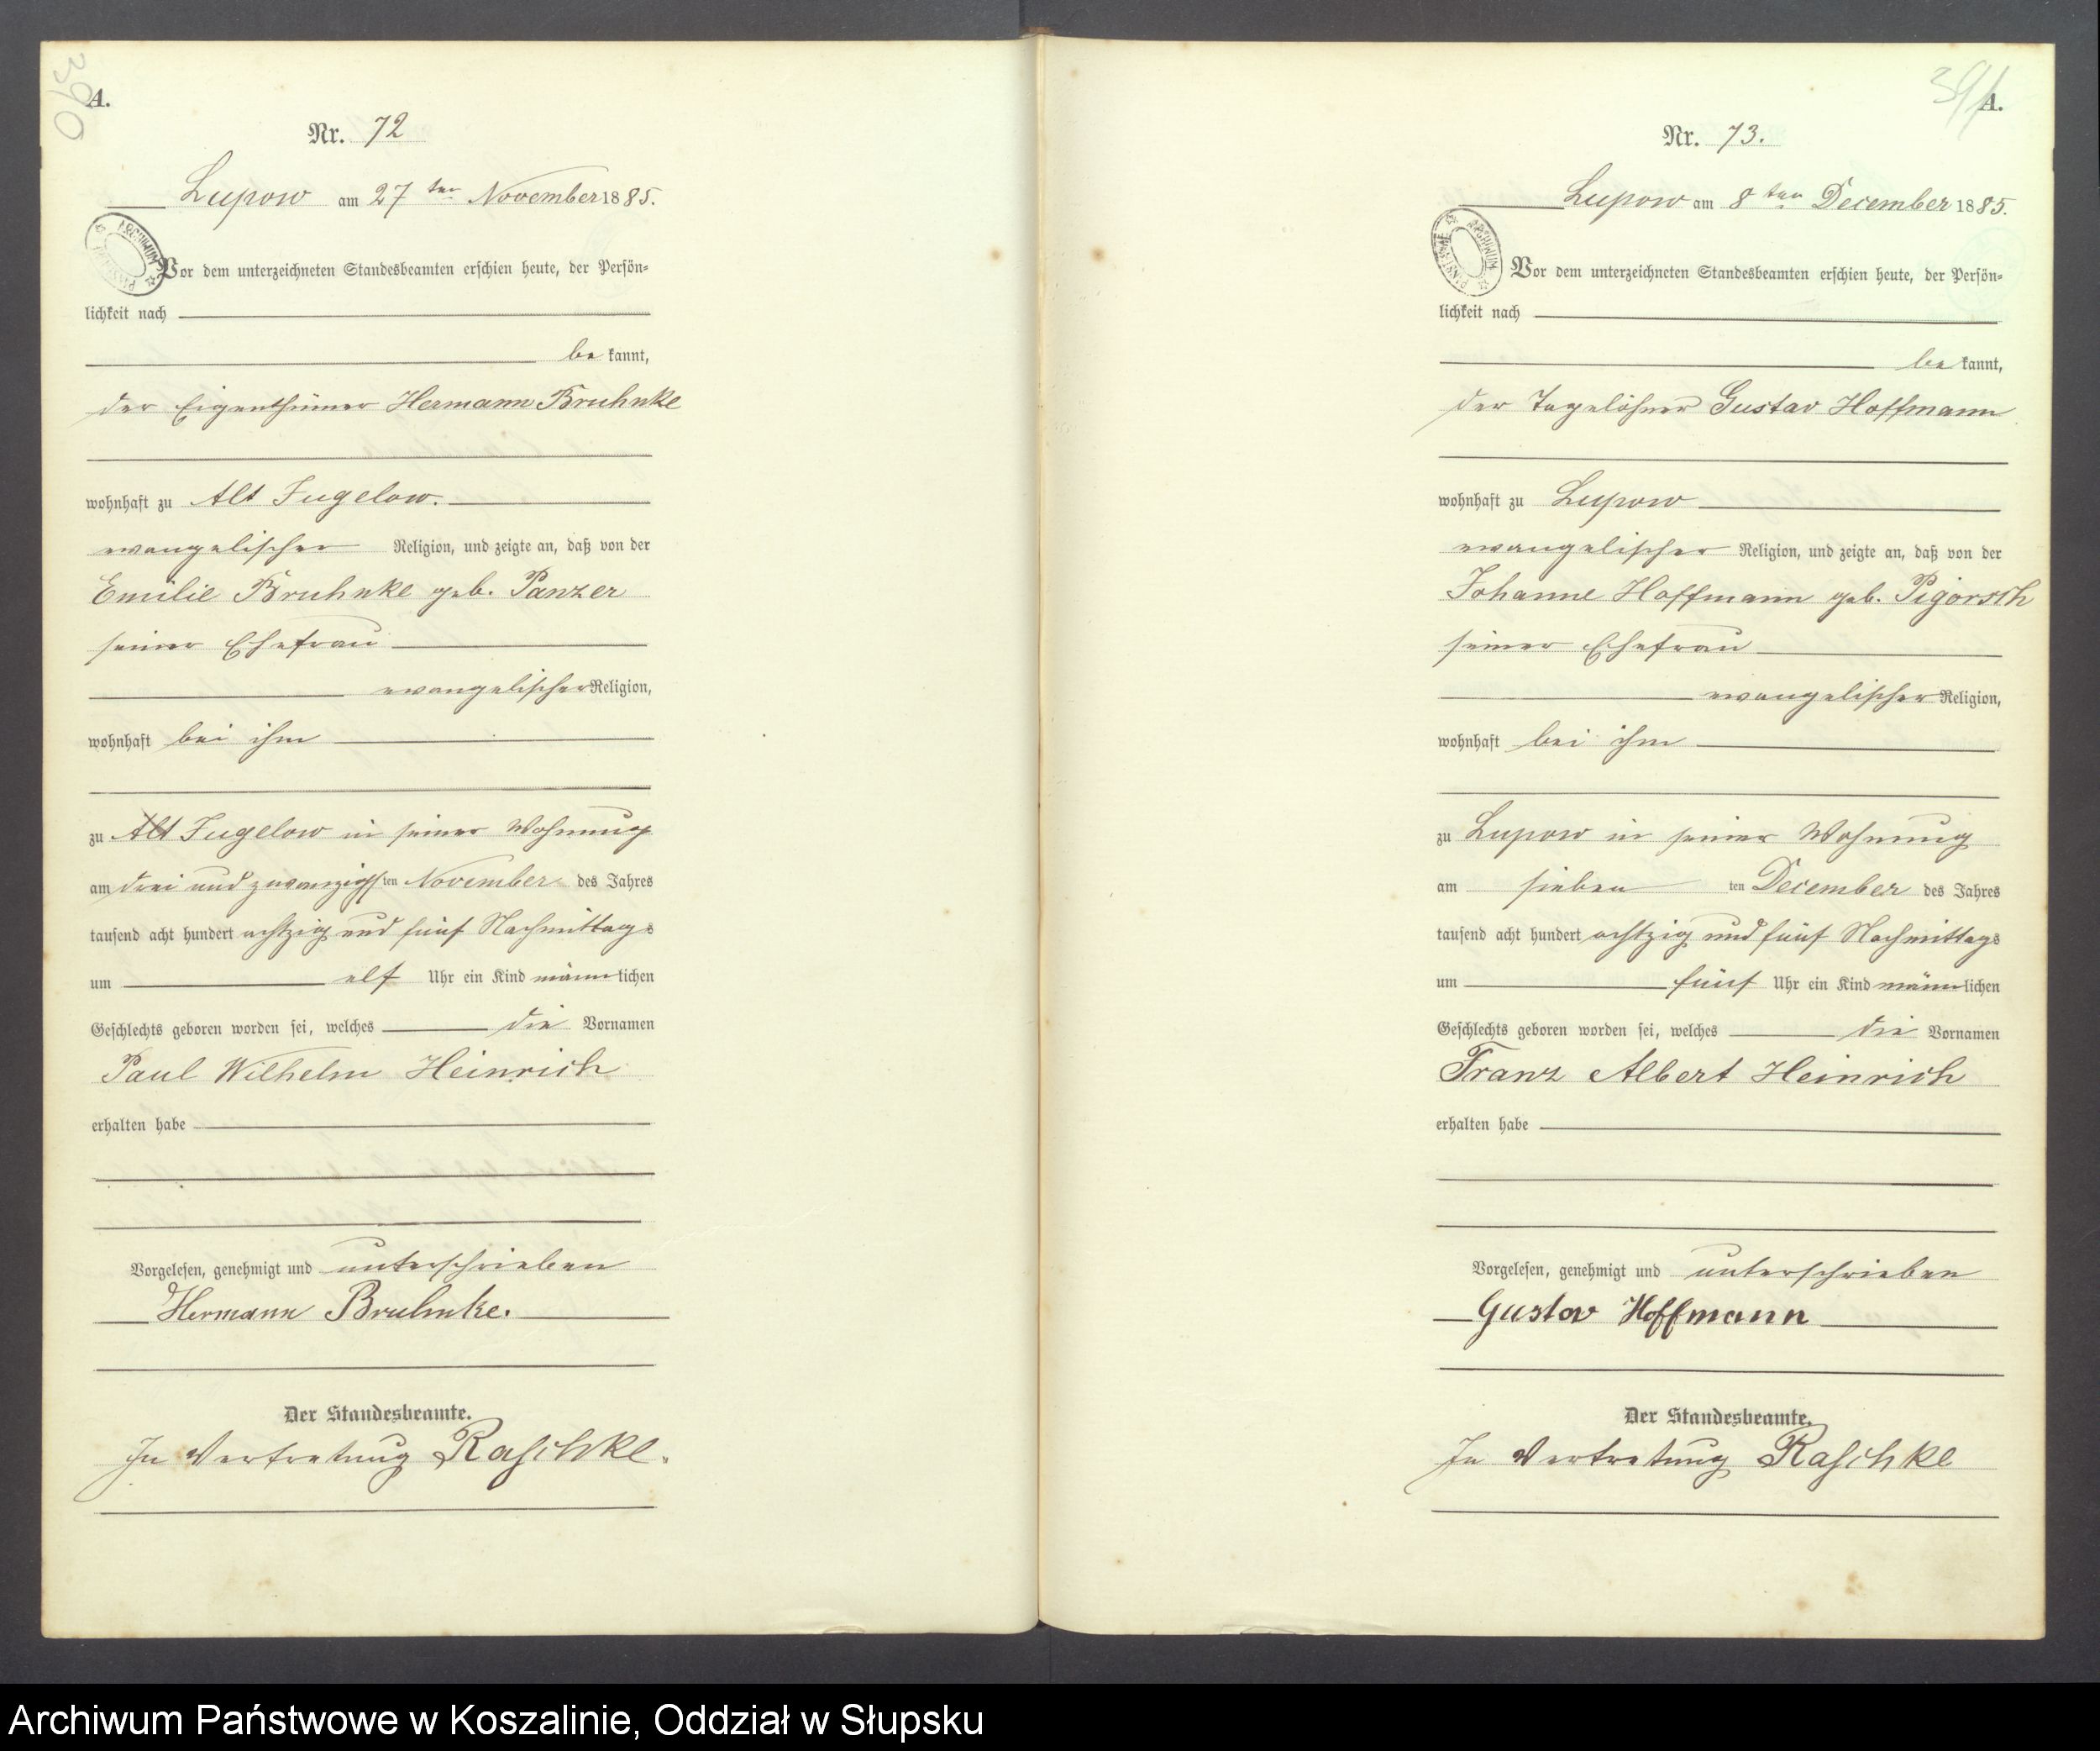 390
A.
Nr. 72
Lupow am 27 ten November 1885.
ARCHIWUM PAŃSTWOWE
Vor dem unterzeichneten Standesbeamten erschien heute, der Persön-
lichkeit nach
be kannt,
der Eigenthümer Hermann Bruhnke
wohnhaft zu Alt Jugelow.
evangelischer Religion, und zeigte an, daß von der
Emilie Bruhnke geb. Panzer
seiner Ehefrau
evangelischer Religion,
wohnhaft bei ihm
zu Alt Jugelow in seiner Wohnung
am drei und zwanzigsten November des Jahres
tausend acht hundert achtzig und fünf Nachmittags
um elf Uhr ein Kind männlichen
Geschlechts geboren worden sei, welches die Vornamen
Paul Wilhelm Heinrich
erhalten habe
Vorgelesen, genehmigt und unterschrieben
Hermann Bruhnke.
Der Standesbeamte.
In Vertretung Raschke.
391
A.
Nr. 73.
Lupow am 8 ten December 1885.
ARCHIWUM PAŃSTWOWE
Vor dem unterzeichneten Standesbeamten erschien heute, der Persön-
lichkeit nach
be kannt,
der Tagelöhner Gustav Hoffmann
wohnhaft zu Lupow
evangelischer Religion, und zeigte an, daß von der
Johanne Hoffmann geb. Pigorsch
seiner Ehefrau
evangelischer Religion,
wohnhaft bei ihm
zu Lupow in seiner Wohnung
am sieben ten December des Jahres
tausend acht hundert achtzig und fünf Nachmittags
um fünf Uhr ein Kind männlichen
Geschlechts geboren worden sei, welches die Vornamen
Franz Albert Heinrich
erhalten habe
Vorgelesen, genehmigt und unterschrieben
Gustav Hoffmann
Der Standesbeamte.
In Vertretung Raschke
Archiwum Państwowe w Koszalinie, Oddział w Słupsku